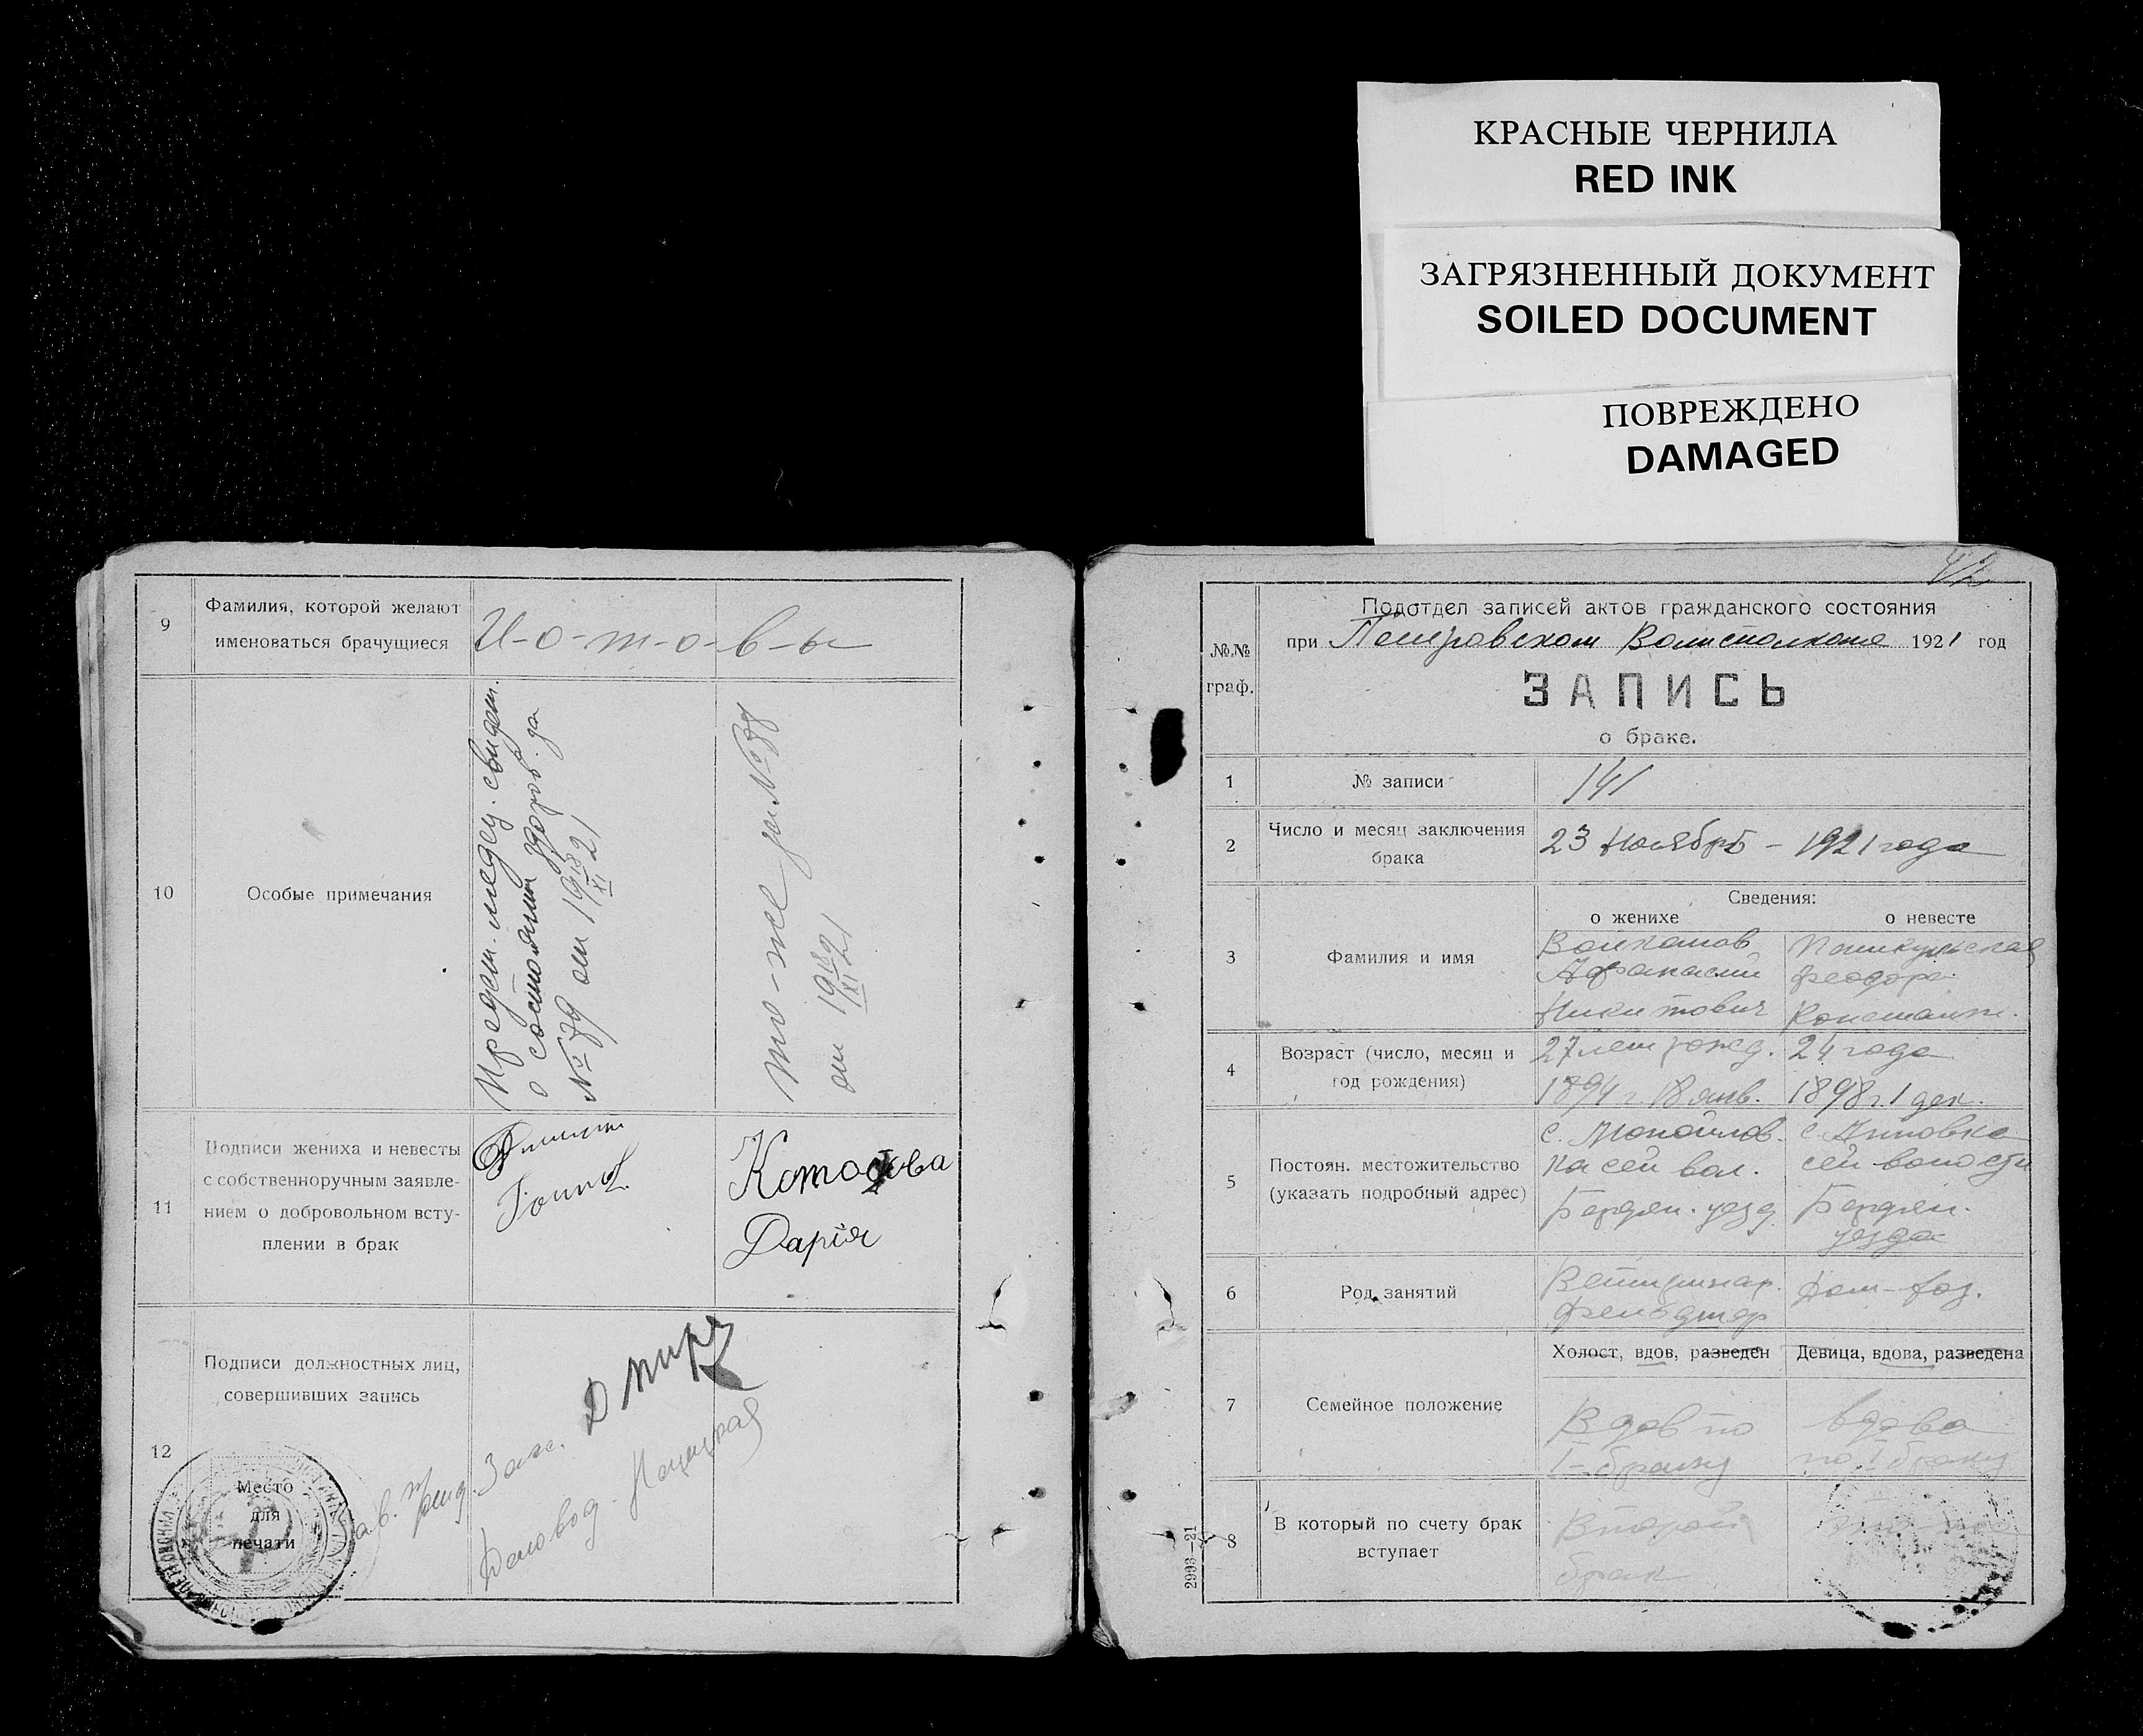 КРАСНЫЕ ЧЕРНИЛА
RED INK
ЗАГРЯЗНЕННЫЙ ДОКУМЕНТ
SOILED DOCUMENT
ПОВРЕЖДЕНО
DAMAGED
9
Фамилия, которой желают
именоваться брачущиеся
10
Особые примечания
Предст. медиц. свидет.
о состоянии здоров. за
№ 79 от 19 18/XI 21
то-же за №
от 19 18/XI 21
11
Подписи жениха и невесты
с собственноручным заявле-
нием о добровольном всту-
плении в брак
Котова
Дарія
12
Подписи должностных лиц,
совершивших запись
Место
для
печати
Зав.
Деловод.
42
№№
граф.
Подотдел записей актов гражданского состояния
при Петровском Волисполкоме 1921 год
ЗАПИСЬ
о браке.
1
№ записи
141
2
Число и месяц заключения
брака
23 Ноября - 1921 года
3
Фамилия и имя
Сведения:
о женихе
о невесте
Афанасий
Никитович
Феодора
Констант.
4
Возраст (число, месяц и
год рождения)
27 лет рожд.
1894 г. 18 янв.
24 года
1898 г. 1 дек.
5
Постоян. местожительство
(указать подробный адрес)
ка сей вол.
Бердян. уезд.
сей волости
Бердян.
уезда
6
Род занятий
Ветеринар.
фельдшер
Дом-хоз.
7
Семейное положение
Холост, вдов, разведен
Девица, вдова, разведена
Вдов по
I-браку
вдова
по I браку
8
В который по счету брак
вступает
Второй
брак
2993—21